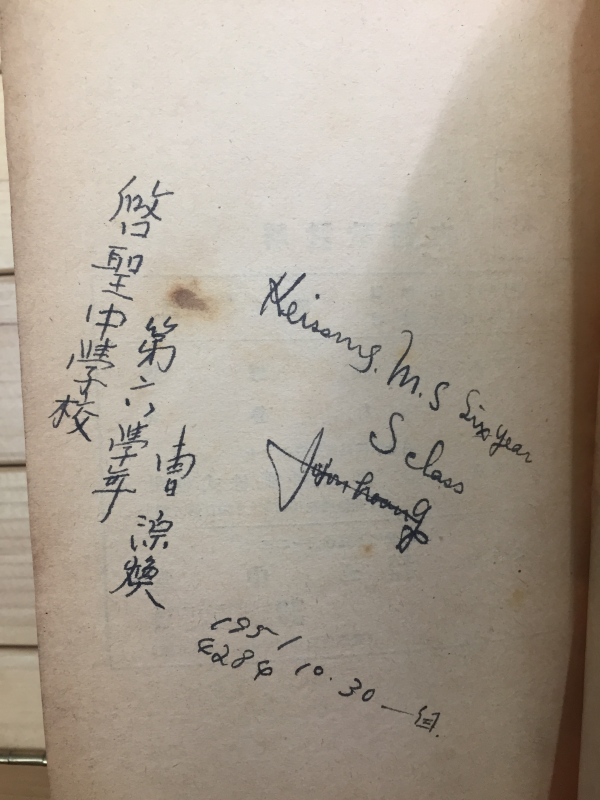 啓聖中學校
第六學年
曺 煥
Keisung. M.S Six year
S class
1951
4284 10.30